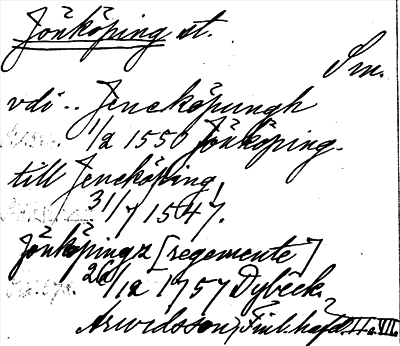 Jönköping st.
Sm.
vdi .. Jencköpungh
1/2 1550 Jönköping.
till Jencköping
31/7 1547.
Jönköpingz [regemente]
28/12 1757 Dybeck.
Arwidsson, Finl. häfd. II o. VII.